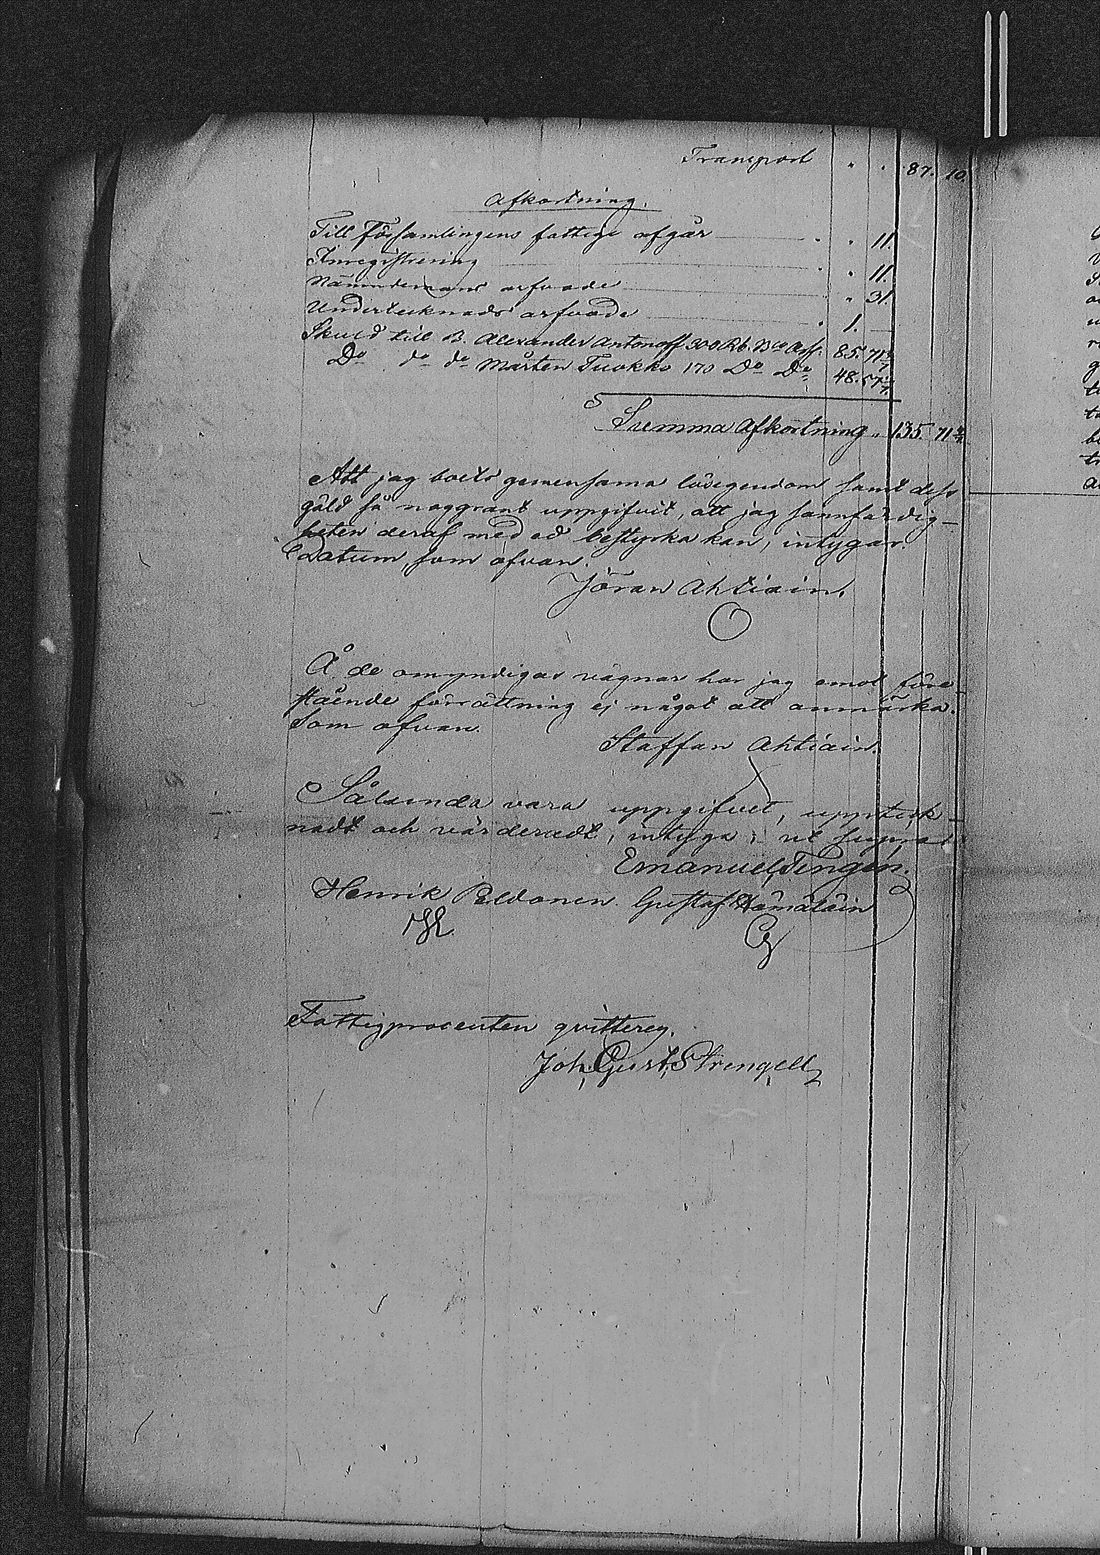 Transport " " 87. 10
Afkortning.
Till Församlingens fattige afgår " " 11.
Inregistrering " " 11.
Nämndemans arfvode " 31.
Undertecknads arfvode " 1. —
Skuld till B. Alexander Antonoff 300 Rb. Bco Ass. 85. 71 3/7
Do do do Mårten Tuokko 170 Do Do 48. 57 1/7
Summa Afkortning " 135 71 4/7
Att jag boets gemensama lösegendom samt dess
gäld så noggrant uppgifvit, att jag sannfärdig-
heten deraf med ed bestyrka kan, intygar.
Datum, som ofvan.
Jöran Ahtiain.
Å de omyndigas vägnar har jag emot före-
stående förrättning ej något att anmärka.
Som ofvan.
Staffan Ahtiain.
Sålunda vara uppgifvet, upptek-
nadt och värderadt, intyga; ut supra
Emanuel Tengén.
Henrik Peldonen. Gustaf Hämäläin
Fattigprocenten qvitterg.
Joh. Gust. Strengell